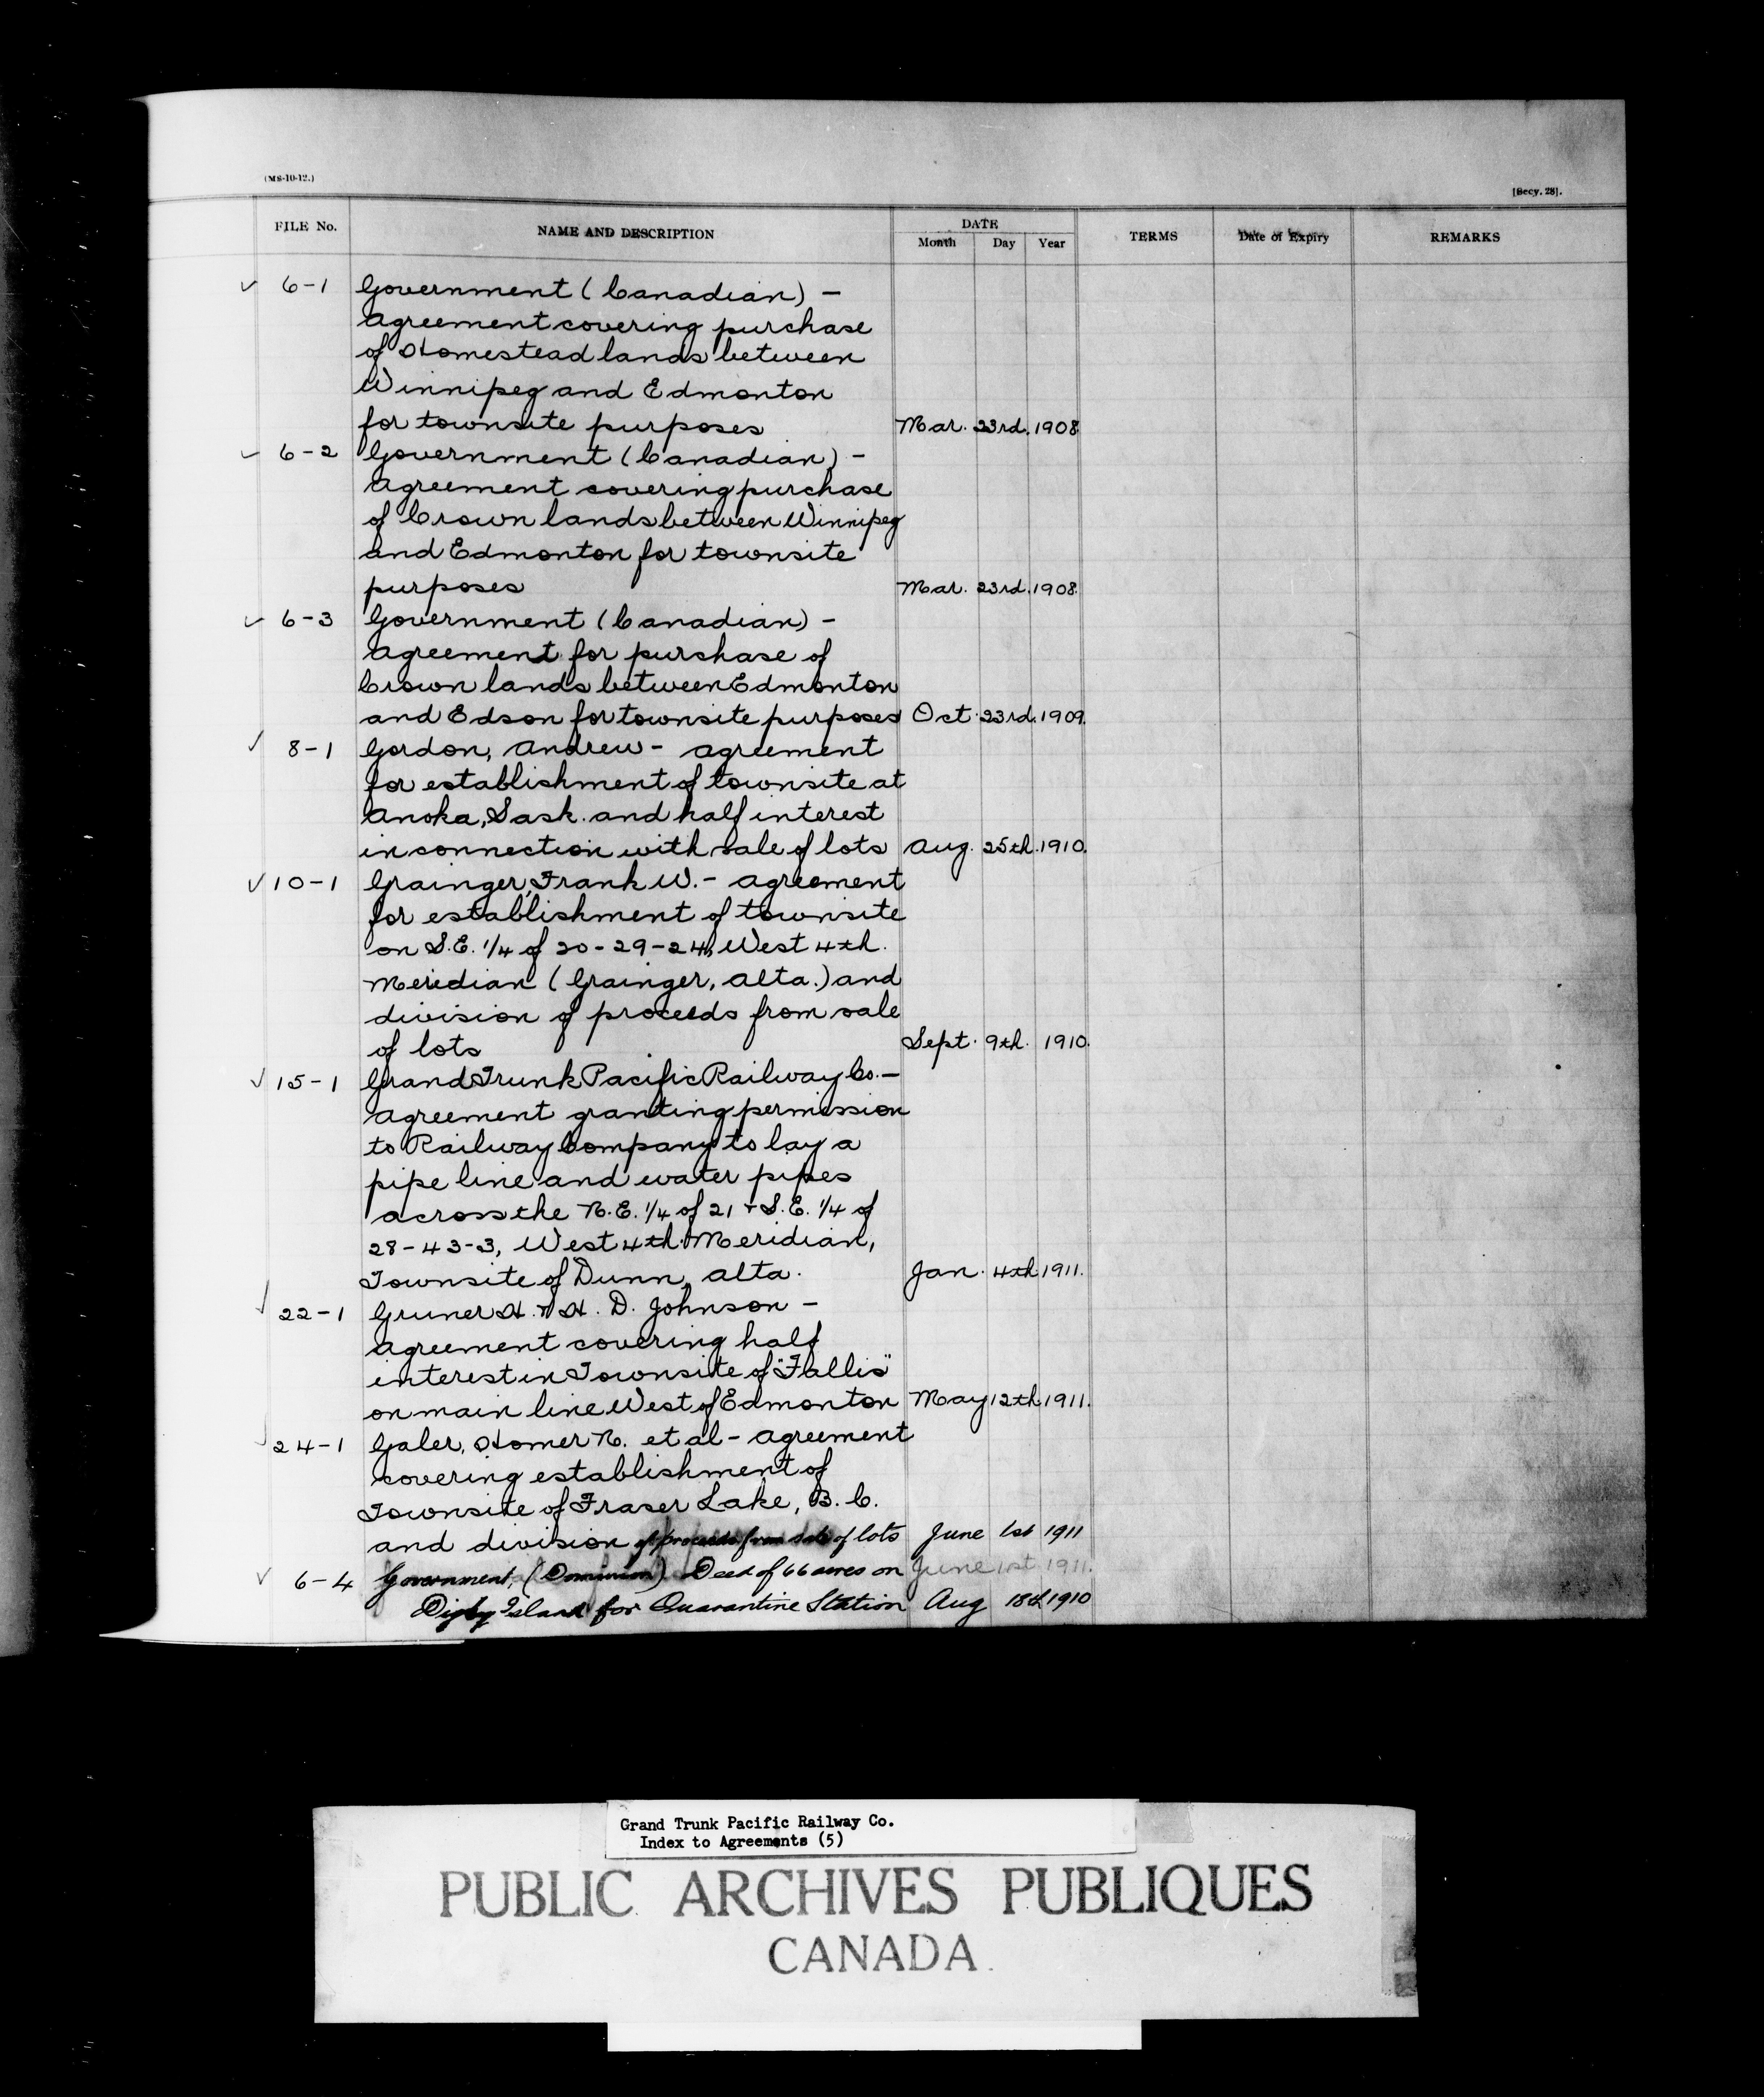 (MS-10-12.)
[Secy. 28].
FILE No. NAME AND DESCRIPTION DATE TERMS Date of Expiry REMARKS
Month Day Year
✓ 6-1 Government (Canadian) -
Agreement covering purchase
of Homestead lands between
Winnipeg and Edmonton
for townsite purposes Mar. 23rd. 1908
✓ 6-2 Government (Canadian) -
Agreement covering purchase
of Crown lands between Winnipeg
and Edmonton for townsite
purposes Mar. 23rd. 1908.
✓ 6-3 Government (Canadian) -
Agreement for purchase of
Crown lands between Edmonton
and Edson for townsite purposes Oct. 23rd. 1909.
✓ 8-1 Gordon, Andrew - Agreement
for establishment of townsite at
Anoka, Sask. and half interest
in connection with sale of lots Aug. 25th. 1910.
✓ 10-1 Grainger, Frank W. - Agreement
for establishment of townsite
on S.E. 1/4 of 20-29-24, West 4th.
Meridian (Grainger, Alta.) and
division of proceeds from sale
of lots Sept. 9th. 1910.
✓ 15-1 Grand Trunk Pacific Railway Co. -
Agreement granting permission
to Railway Company to lay a
pipe line and water pipes
across the N.E. 1/4 of 21 + S.E. 1/4 of
28-43-3, West 4th. Meridian,
Townsite of Dunn, Alta. Jan. 4th. 1911.
✓ 22-1 Gruner H. & H. D. Johnson -
Agreement covering half
interest in Townsite of "Fallis"
on main line West of Edmonton May 12th. 1911.
✓ 24-1 Galer, Homer N. et al - Agreement
covering establishment of
Townsite of Fraser Lake, B. C.
and division of proceeds from sale of lots June 1st 1911
✓ 6-4 Government, (Dominion) Deed of 66 acres on June 1st 1911.
Digby Island for Quarantine Station Aug 18th 1910
Grand Trunk Pacific Railway Co.
Index to Agreements (5)
PUBLIC ARCHIVES PUBLIQUES
CANADA.